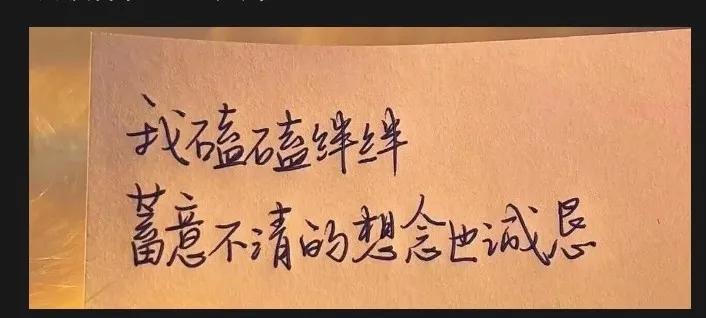 我磕磕绊绊
蓄意不清的想念也诚恳